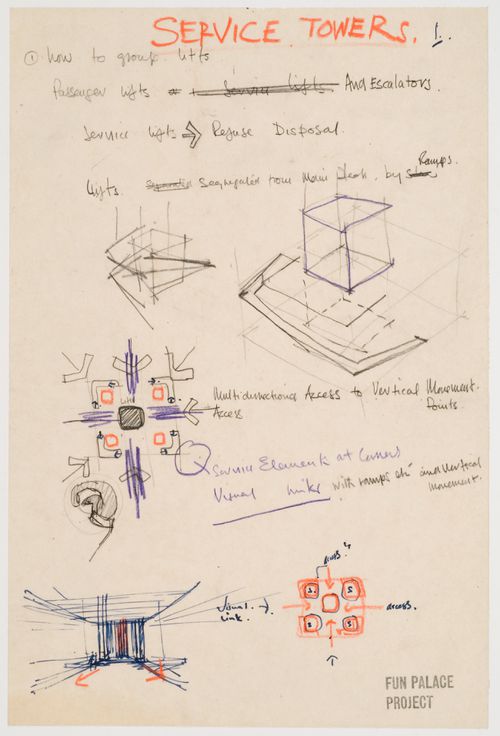 SERVICE TOWERS. 1.
① how to group lifts
Passenger lifts + Service lifts. And Escalators.
Service lifts ⇒ Refuse Disposal.
Ramps.
Lifts. Separated Segregated from Main Deck. by
Lift
Multidirectional Access to Vertical Movement.
Access Points.
Service Element at Corners
Visual links with ramps etc and Vertical
Movement.
access.
Visual →
link.
S. S
S S
access.
FUN PALACE
PROJECT